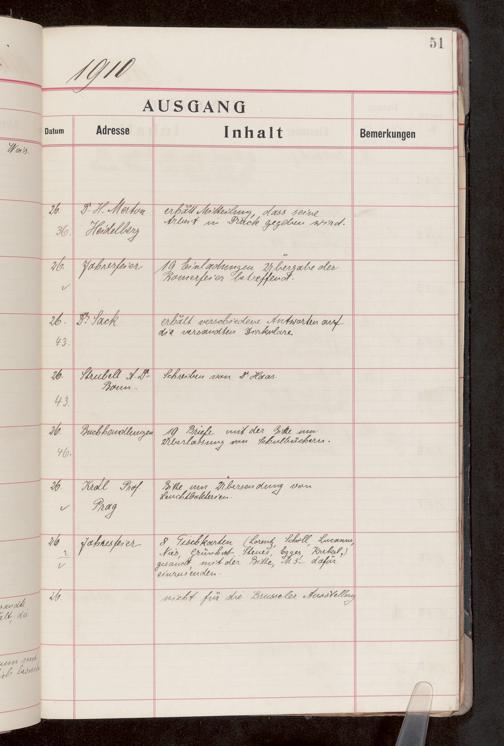 51
1910
AUSGANG
Datum Adresse Inhalt Bemerkungen
Wois.
26. Dr H. Merton erhält Mitteilung, dass seine
36. Heidelberg Arbeit in Druck gegeben wird.
26. Jahresfeier 19 Einladungen, Übergabe der
betreffend.
26. Dr. Sack erhält verschiedene Antworten auf
43. die versandten Zirkulare.
26. Strubell A Dr. Schreiben von Dr Haas.
43. Bonn.
26. Buchhandlungen 19 Briefe mit der Bitte um
46. Überlassung von Schulbüchern.
26. Kral Prof Bitte um Übersendung von
Prag Leuchtbakterien.
26. Jahresfeier 8 Tischkarten (Lorent, Scholl, Lucanus,
gesandt mit der Bitte, M 5.- dafür
einzusenden.
26. nicht für die Brüsseler Ausstellung